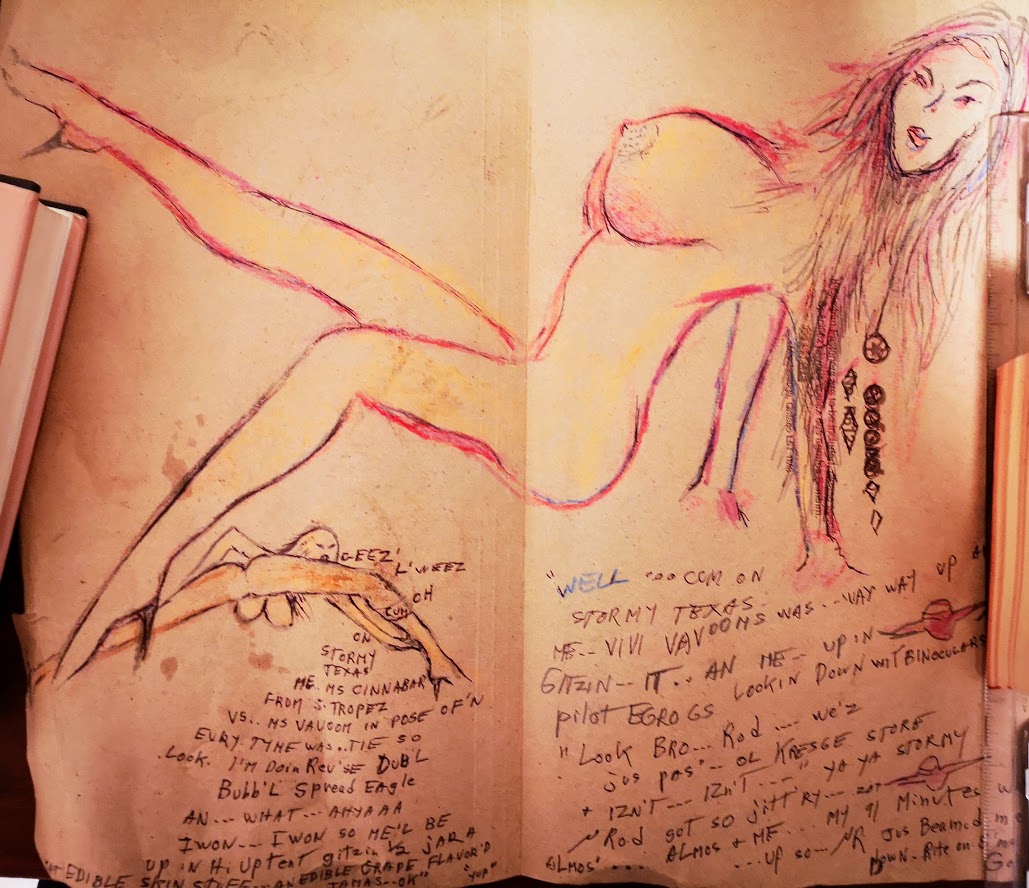 GEEZ'
L'WEEZ
OH
CUM
ON
STORMY
TEXAS
ME. MS CINNABAR
FROM S. TROPEZ
VS.. MS VAVOOM IN POSE OF'N
EVRY TYME WAS..TIE SO
LOOK. I'M DOIN REV'SE DUB'L
BUBB'L SPREAD EAGLE
AN --- WHAT --- AHYAAA
I WON --- I WON SO HE'L BE
UP IN HI UP TENT gitzin 1/2 JAR A
EDIBLE SKIN STUFF... AN EDIBLE GRAPE FLAVOR'D
JAMAS--OK" "YUP"
"WELL ooo COM ON
STORMY TEXAS
ME-- VIVI VAVOOMS WAS...WAY WAY UP
GITZIN-- IT.. AN ME-- UP IN
LOOKIN DOWN WIT BINOCULARS
pilot EGROGS
"LOOK BRO... Rod .... WE'Z
jus pas'-- OL KRESGE STORE
+ IZN'T --- IZN'T ---" YA YA STORMY
Rod got so jitt'ry--
ALMOS + ME... MY 91 Minutes
ALMOS' .... ...UP so-- jus Beamed
DOWN- Rite on